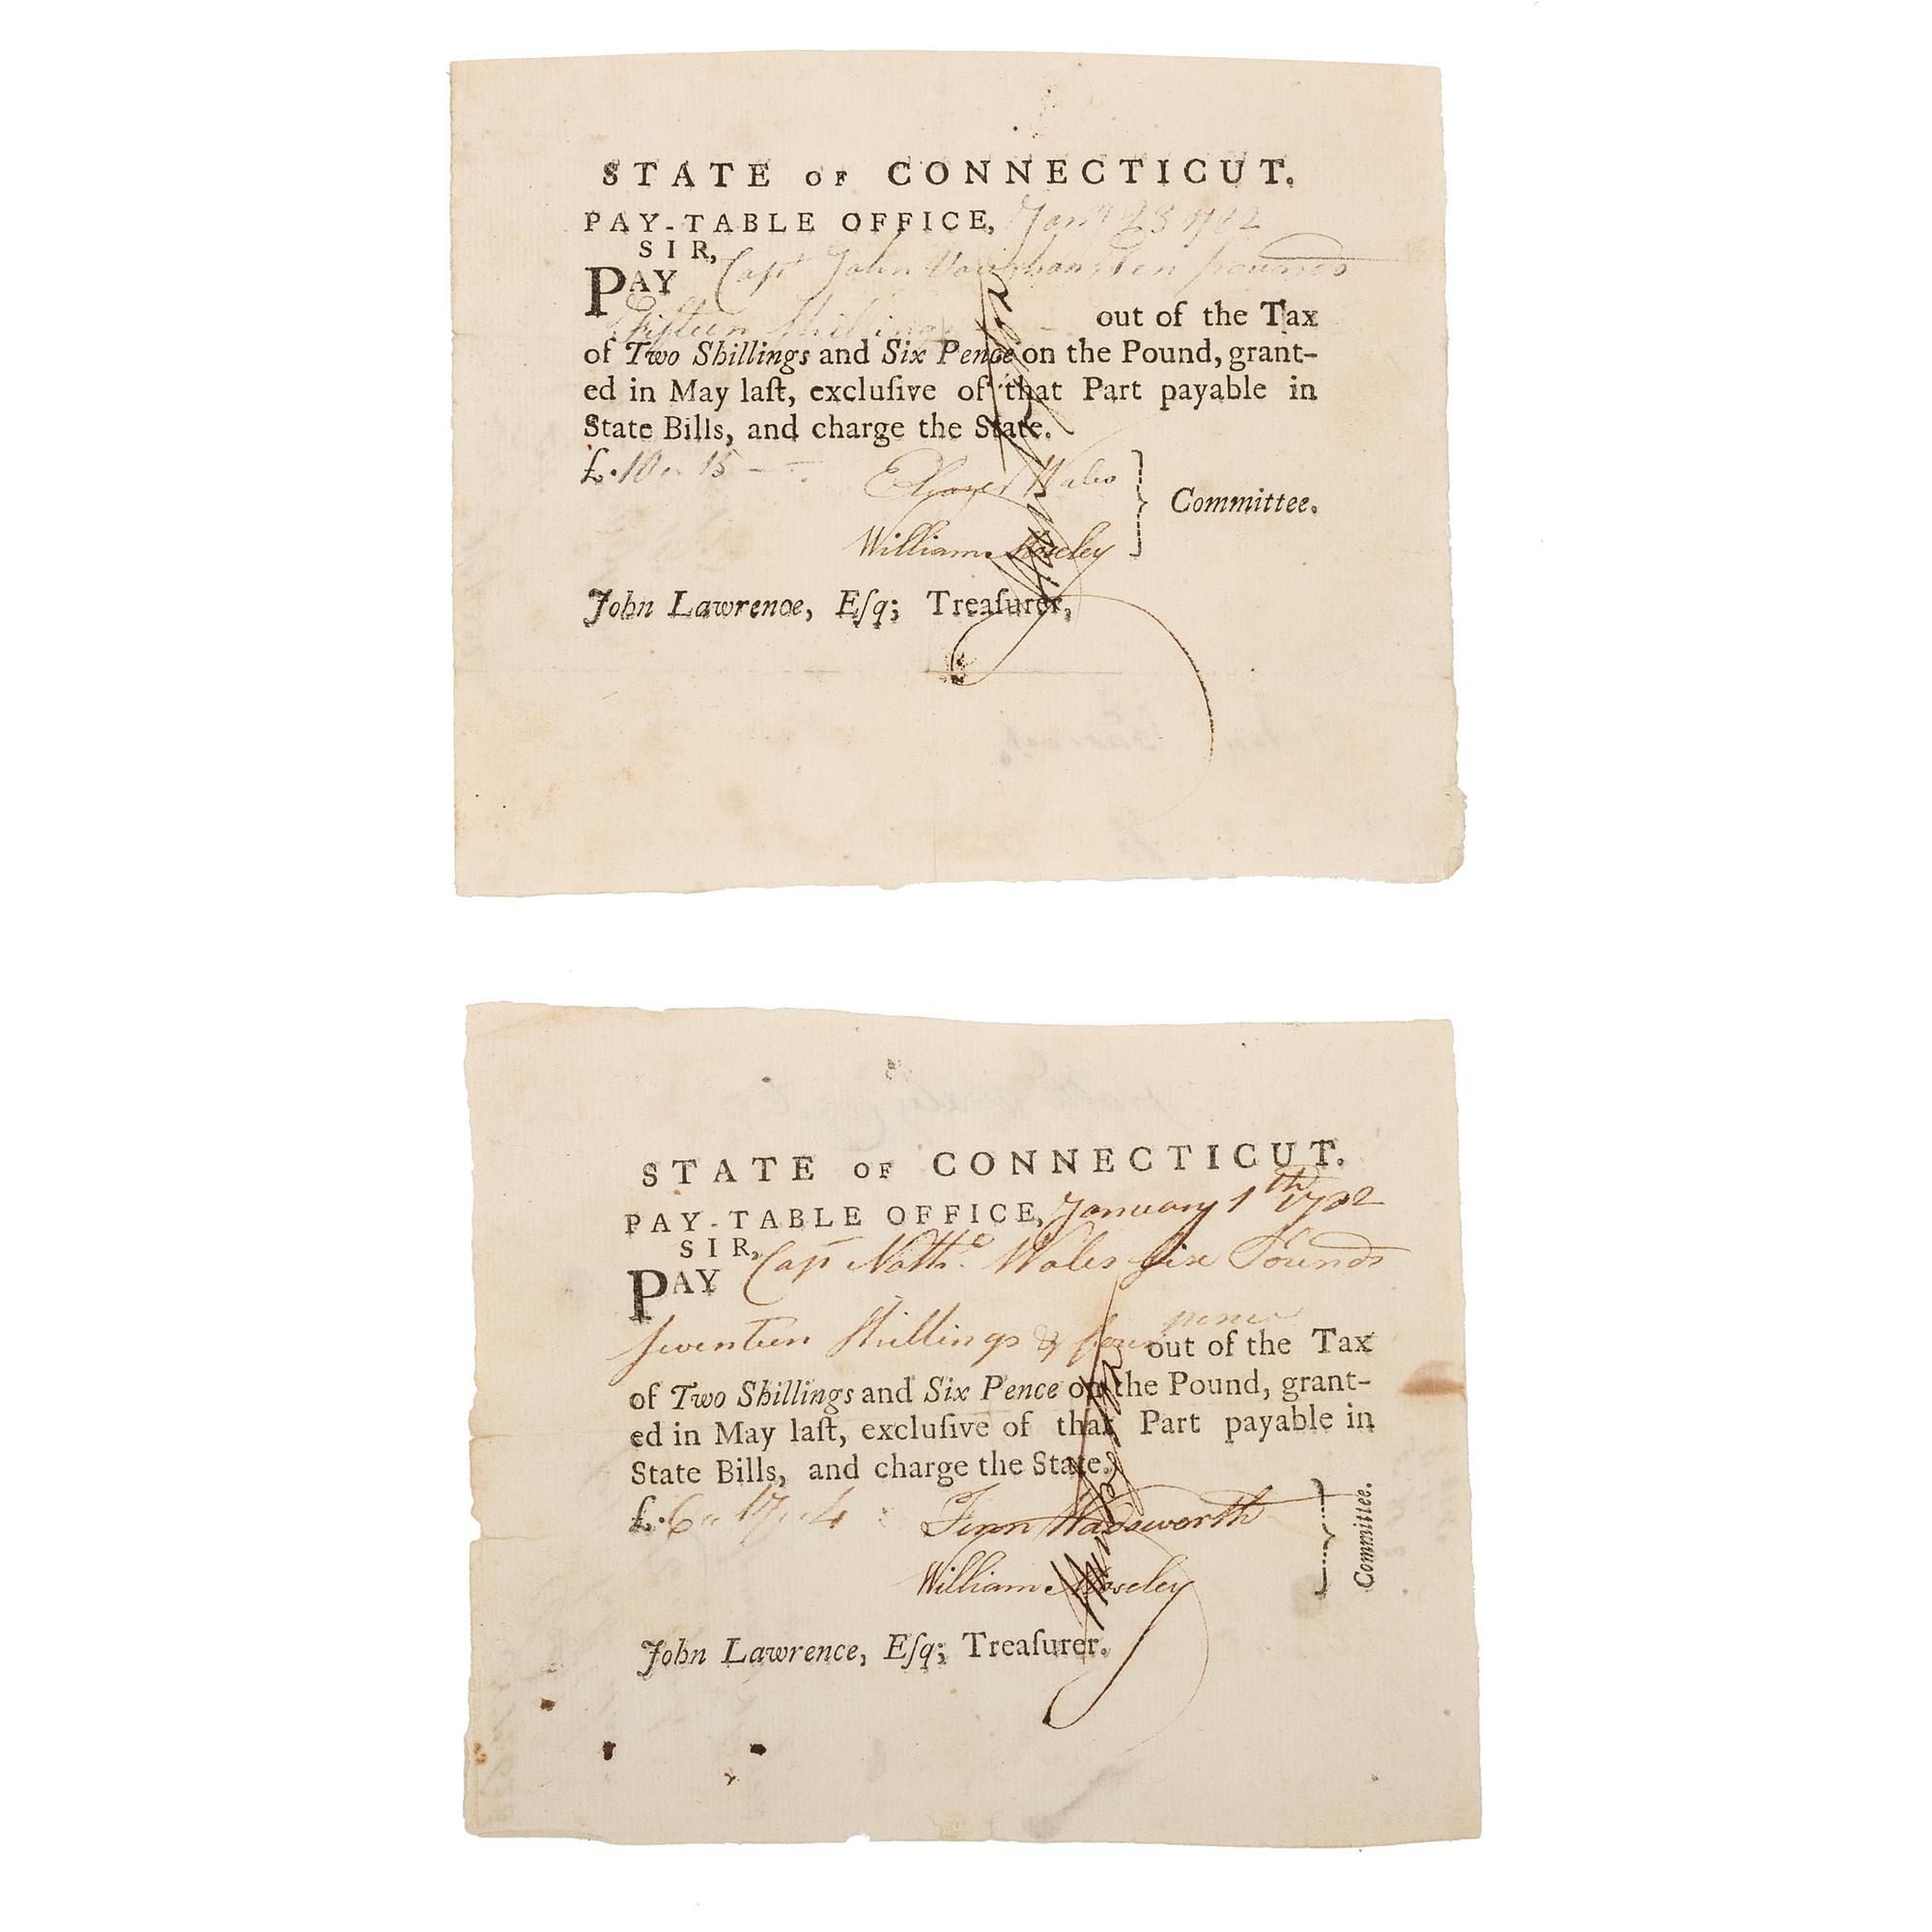 STATE OF CONNECTICUT.
PAY-TABLE OFFICE, Jany 23 1782
SIR,
PAY Capt John Vaughan Ten pounds
Fifteen Shillings out of the Tax
of Two Shillings and Six Pence on the Pound, grant-
ed in May laſt, excluſive of that Part payable in
State Bills, and charge the State.
£. 10 .. 15 - -
Eleazer Wales
Committee.
William Moseley
John Lawrence, Eſq; Treaſurer,
STATE OF CONNECTICUT.
PAY-TABLE OFFICE, January 1th 1782
SIR,
PAY Capt Nathl Wales Six Pounds
Seventeen Shillings & four pence
out of the Tax
of Two Shillings and Six Pence on the Pound, grant-
ed in May laſt, excluſive of that Part payable in
State Bills, and charge the State.
£. 6 .. 17 .. 4 Fenn Wadsworth
Committee.
William Moseley
John Lawrence, Eſq; Treaſurer.